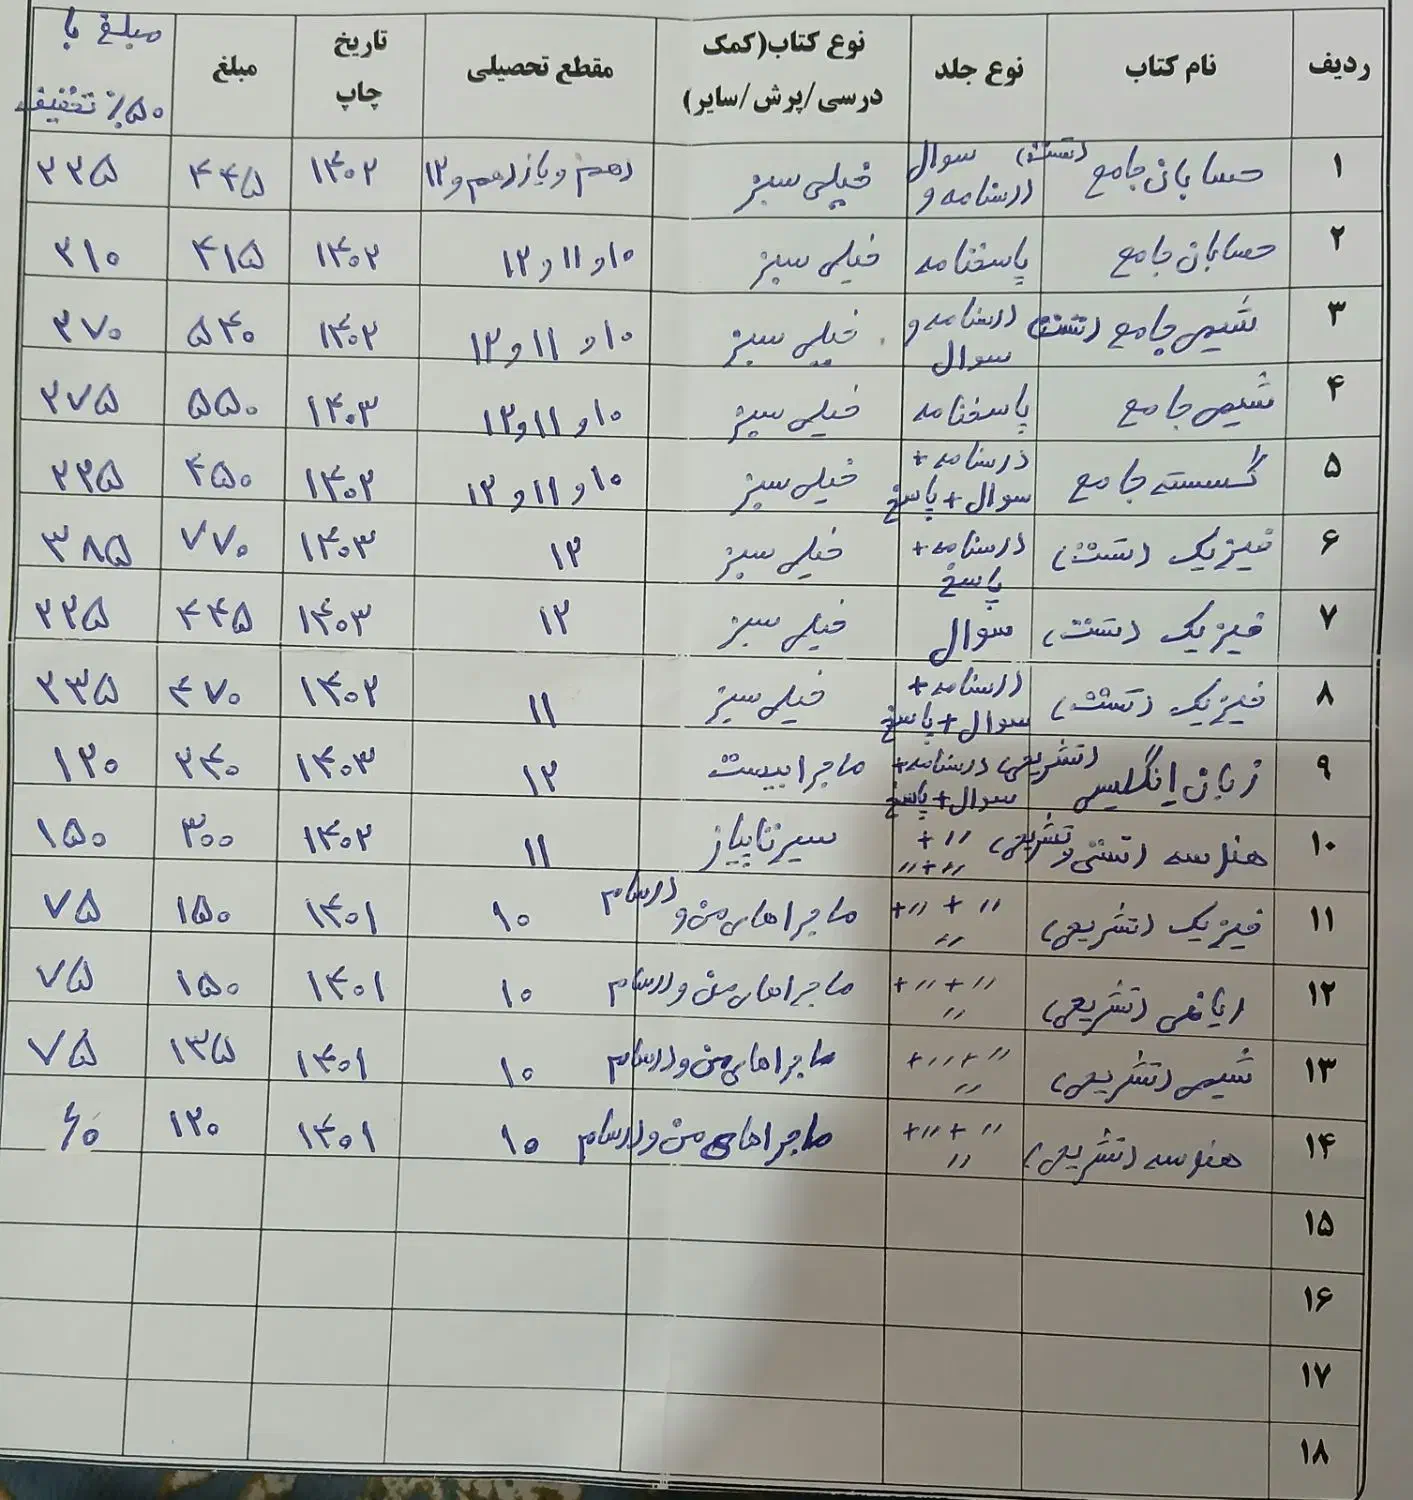 ردیف نام کتاب نوع جلد نوع کتاب(کمک درسی/پرش/سایر) مقطع تحصیلی تاریخ چاپ مبلغ مبلغ با ۵۰٪ تخفیف
۱ حسابان جامع (تست) سوال درسنامه و خیلی سبز دهم و یازدهم و ۱۲ ۱۴۰۲ ۴۴۵ ۲۲۵
۲ حسابان جامع پاسخنامه خیلی سبز ۱۰ و ۱۱ و ۱۲ ۱۴۰۲ ۴۱۵ ۲۱۰
۳ شیمی جامع (تست) درسنامه و سوال خیلی سبز ۱۰ و ۱۱ و ۱۲ ۱۴۰۲ ۵۴۰ ۲۷۰
۴ شیمی جامع پاسخنامه خیلی سبز ۱۰ و ۱۱ و ۱۲ ۱۴۰۳ ۵۵۰ ۲۷۵
۵ گسسته جامع درسنامه + سوال + پاسخ خیلی سبز ۱۰ و ۱۱ و ۱۲ ۱۴۰۲ ۴۵۰ ۲۲۵
۶ فیزیک (تست) درسنامه + پاسخ خیلی سبز ۱۲ ۱۴۰۳ ۷۷۰ ۳۸۵
۷ فیزیک (تست) سوال خیلی سبز ۱۲ ۱۴۰۳ ۴۴۵ ۲۲۵
۸ فیزیک (تست) درسنامه + سوال + پاسخ خیلی سبز ۱۱ ۱۴۰۲ ۴۷۰ ۲۳۵
۹ زبان انگلیسی (تشریحی) درسنامه + سوال + پاسخ ماجرا بیست ۱۲ ۱۴۰۳ ۲۴۰ ۱۲۰
۱۰ هندسه (تستی و تشریحی) // + // + // سیر تا پیاز ۱۱ ۱۴۰۲ ۳۰۰ ۱۵۰
۱۱ فیزیک (تشریحی) // + // + // ماجراهای من و درسام ۱۰ ۱۴۰۱ ۱۵۰ ۷۵
۱۲ ریاضی (تشریحی) // + // + // ماجراهای من و درسام ۱۰ ۱۴۰۱ ۱۵۰ ۷۵
۱۳ شیمی (تشریحی) // + // + // ماجراهای من و درسام ۱۰ ۱۴۰۱ ۱۳۵ ۷۵
۱۴ هندسه (تشریحی) // + // + // ماجراهای من و درسام ۱۰ ۱۴۰۱ ۱۲۰ ۶۰
۱۵
۱۶
۱۷
۱۸